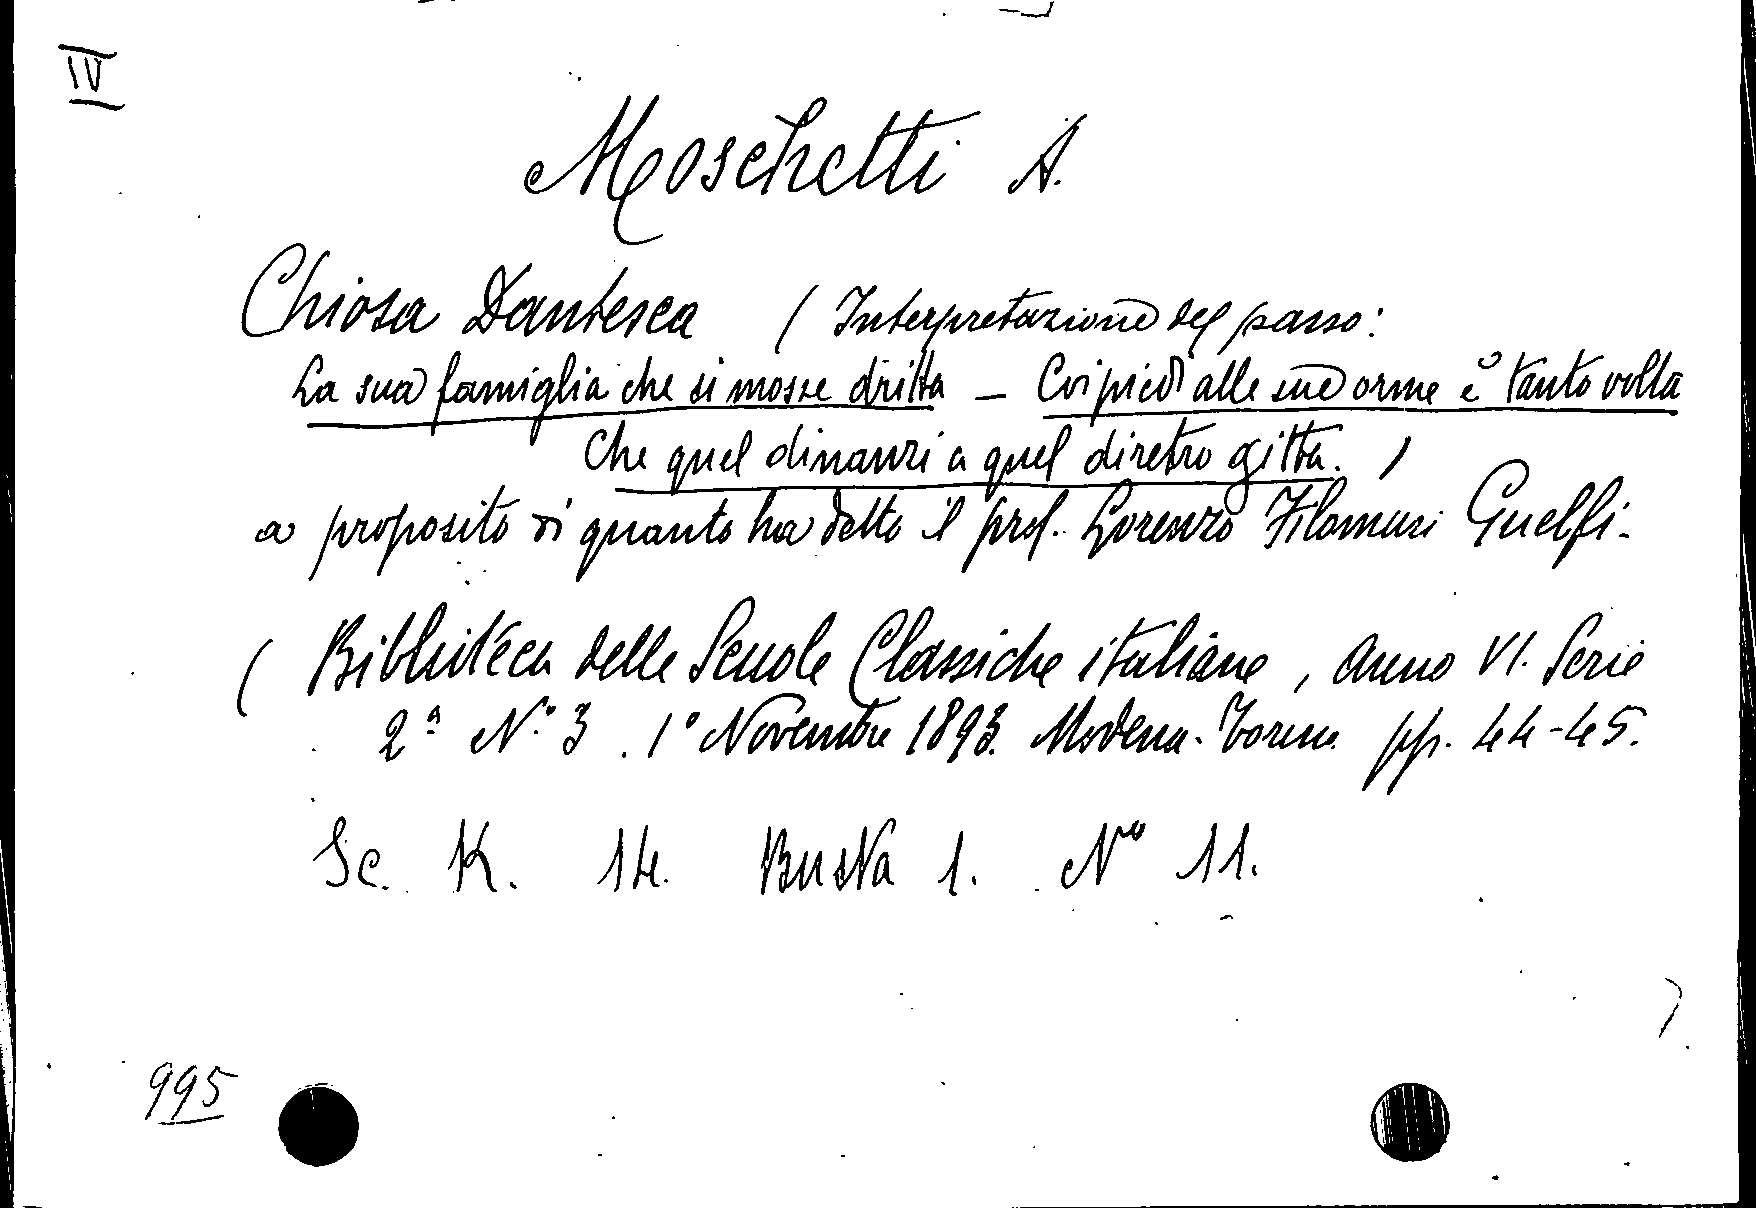 IV
Moschetti A.
Chiosa Dantesca ( Interpretazione del passo:
La sua famiglia che si mosse dritta — Coi piedi alle sue orme è tanto volta
Che quel dinanzi a quel diretro gitta. )
a proposito di quanto ha detto il prof. Lorenzo Filomusi Guelfi.
( Biblioteca delle Scuole Classiche italiane, Anno VI. Serie
2ª N.° 3. 1° Novembre 1893. Modena - Torino pp. 44-45.
Sc. K. 14. Busta 1. N° 11.
995